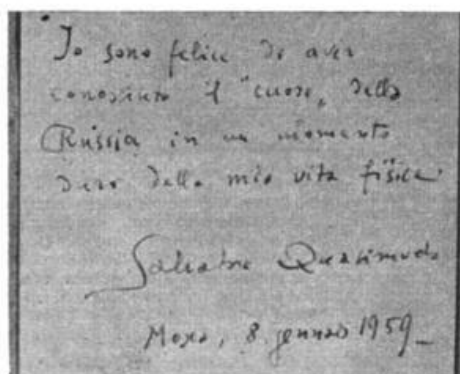 Io sono felice di aver
conosciuto il "cuore" della
Russia in un momento
duro della mia vita fisica.
Salvatore Quasimodo
Mosca, 8 gennaio 1959